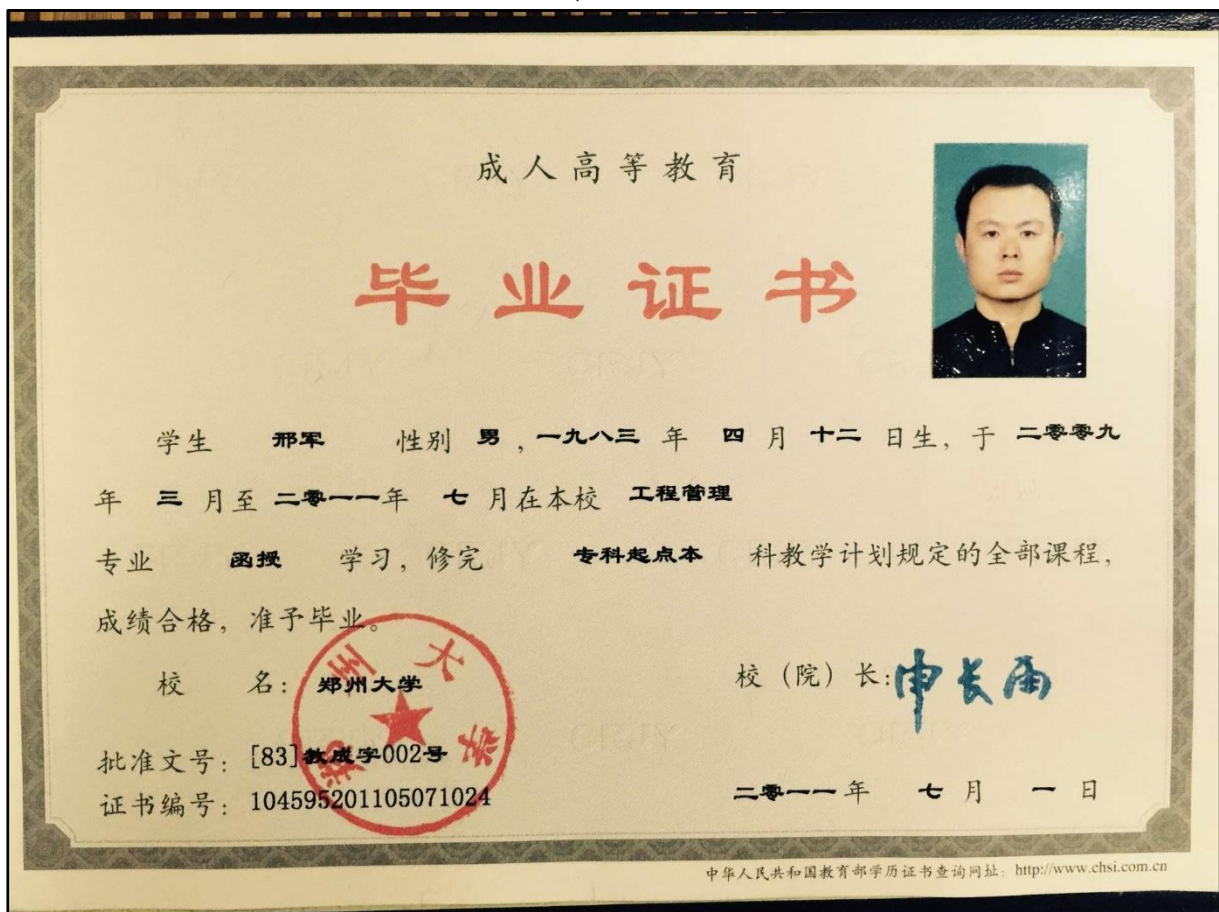 成人高等教育
毕业证书
学生 邢军 性别 男，一九八三 年 四 月 十二 日生，于 二零零九
年 三 月至 二零一一年 七 月在本校 工程管理
专业 函授 学习，修完 专科起点本 科教学计划规定的全部课程，
成绩合格，准予毕业。
校 名：郑州大学
校（院）长：申长雨
批准文号：[83]教成字002号
证书编号：104595201105071024
二零一一 年 七 月 一 日
郑州大学
中华人民共和国教育部学历证书查询网址：http://www.chsi.com.cn